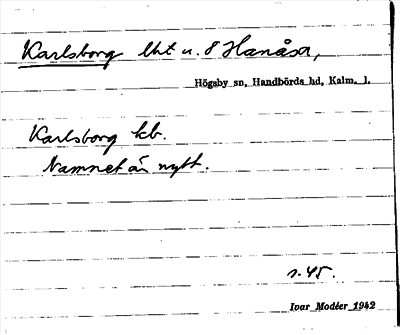 Karlsborg lht u. 8 Hanåsa,
Högsby sn, Handbörds hd, Kalm. l.
Karlsborg kb.
Namnet är nytt.
s. 45.
Ivar Modéer 1942